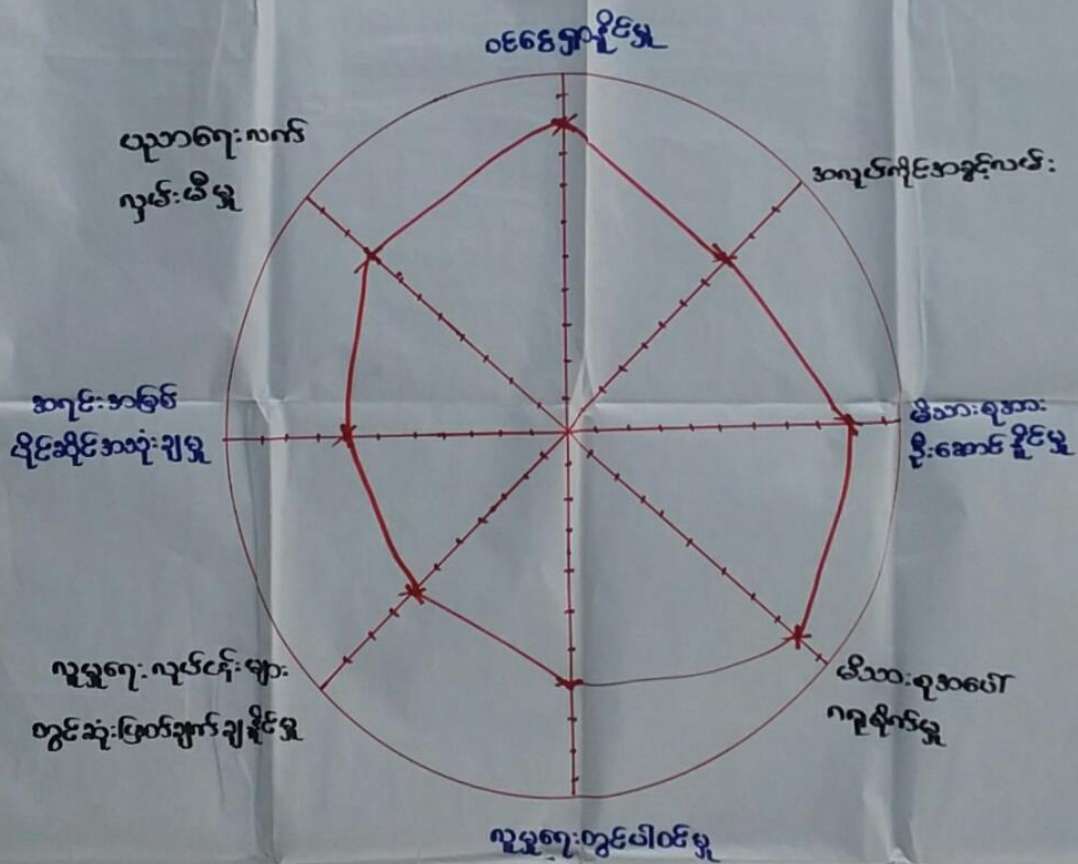 ဝင်ငွေရှာနိုင်မှု
အလုပ်ကိုင်အခွင့်လမ်း
မိသားစုအား
ဦးဆောင်နိုင်မှု
မိသားစုအပေါ်
ဂရုစိုက်မှု
လူမှုရေးတွင်ပါဝင်မှု
လူမှုရေးလုပ်ငန်းများ
တွင်ဆုံးဖြတ်ချက်ချနိုင်မှု
အရင်းအမြစ်
ပိုင်ဆိုင်အသုံးချမှု
ပညာရေးလက်
လှမ်းမီမှု